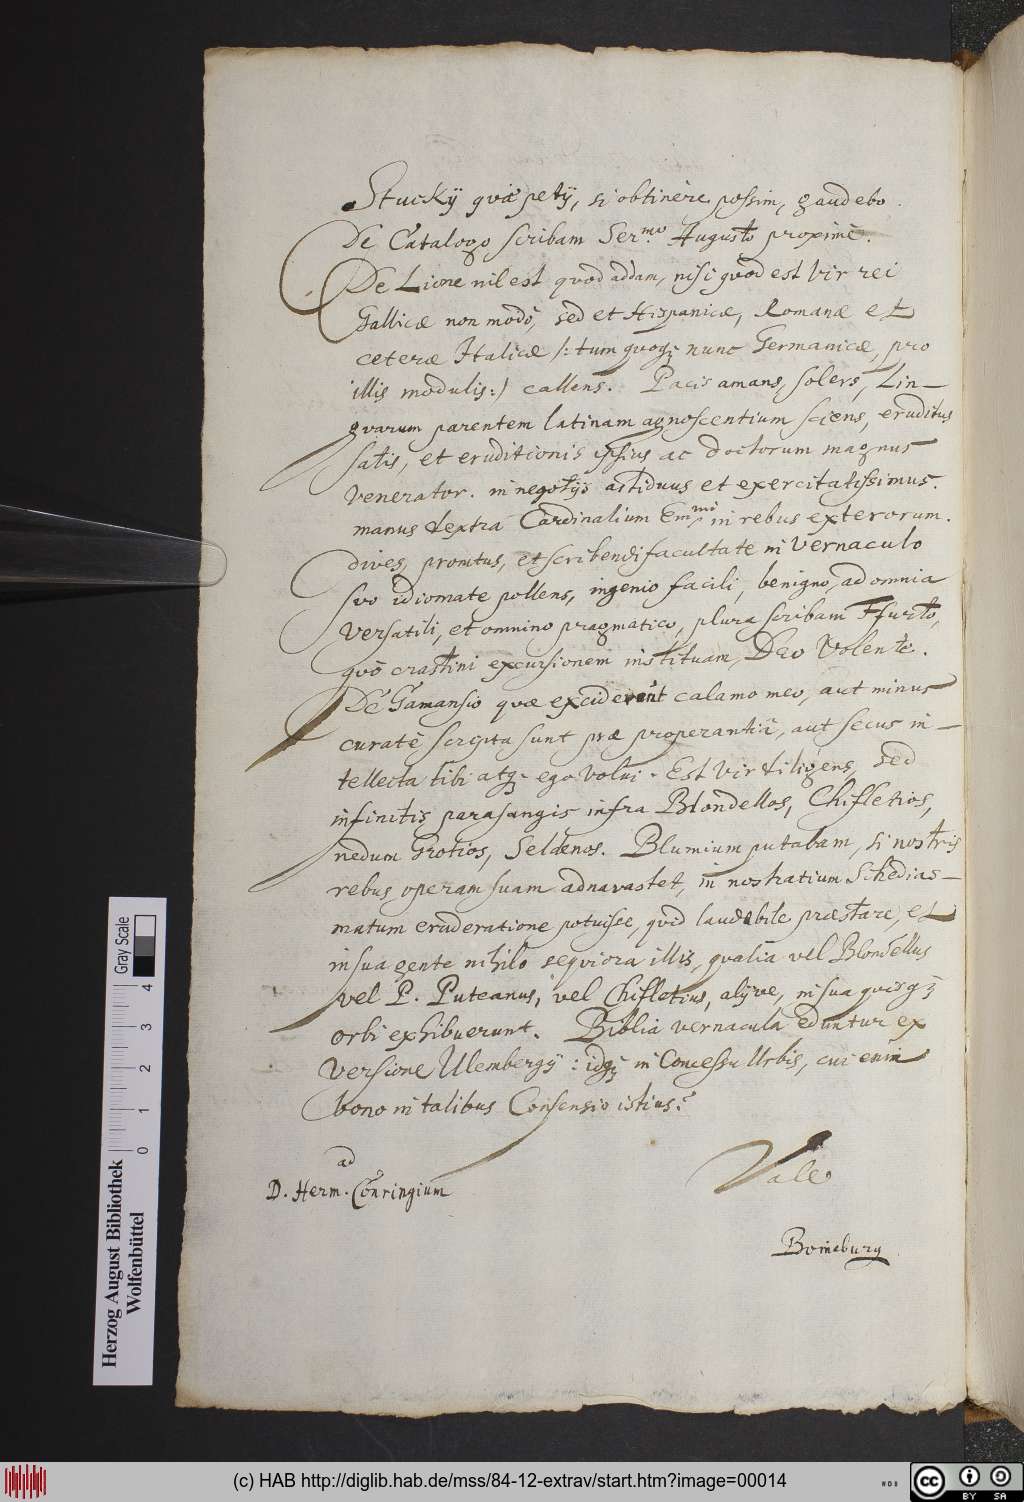 Stuckij quæ petij, si obtinere possim, gaudebo.
De Catalogo scribam Ser.mo Augusto proximè.
De Lione nil est quod addam, nisi quod est vir rei
Gallicæ non modò, sed et Hispanicæ, Romanæ et
ceteræ Italicæ /: tum quoq; nunc Germanicæ, pro
illis modulis :/ callens. Pacis amans, solers, Lin-
guarum parentem latinam agnoscentium sciens, eruditus
satis, et eruditionis ipsius ac doctorum magnus
venerator. in negotijs assiduus et exercitatissimus.
manus dextra Cardinalium Em.mi in rebus exterorum.
dives, promtus, et scribendi facultate in vernaculo
suo idiomate pollens, ingenio facili, benigno, ad omnia
versatili, et omnino pragmatico, plura scribam Ffurto,
quò crastini excursionem instituam, Deo Volente.
De Gamansio quæ exciderunt calamo meo, aut minus
curatè scripta sunt præ properantiâ, aut secus in-
tellecta tibi atq; ego volui. Est vir diligens, sed
infinitis parasangis infra Blondellos, Chifletios,
nedum Grotios, Seldenos. Blumium putabam, si nostris
rebus operam suam adnavasset, in nostratium Schedias-
matum eruderatione potuisse, quid laudabile præstare, et
in sua gente nihilo sequiora illis, qualia vel Blondellus
vel P. Puteanus, vel Chifletius, alijve, in sua quisq;
orbi exhibuerunt. Biblia vernacula eduntur ex
versione Ulembergij: idq; in Concessu Urbis, cui enim
bono in talibus Consensio istius?
Vale
ad
D. Herm. Conringium
Boineburg
Herzog August Bibliothek
Wolfenbüttel
0 1 2 3 4
Gray Scale
(c) HAB http://diglib.hab.de/mss/84-12-extrav/start.htm?image=00014
WDB
cc
BY SA